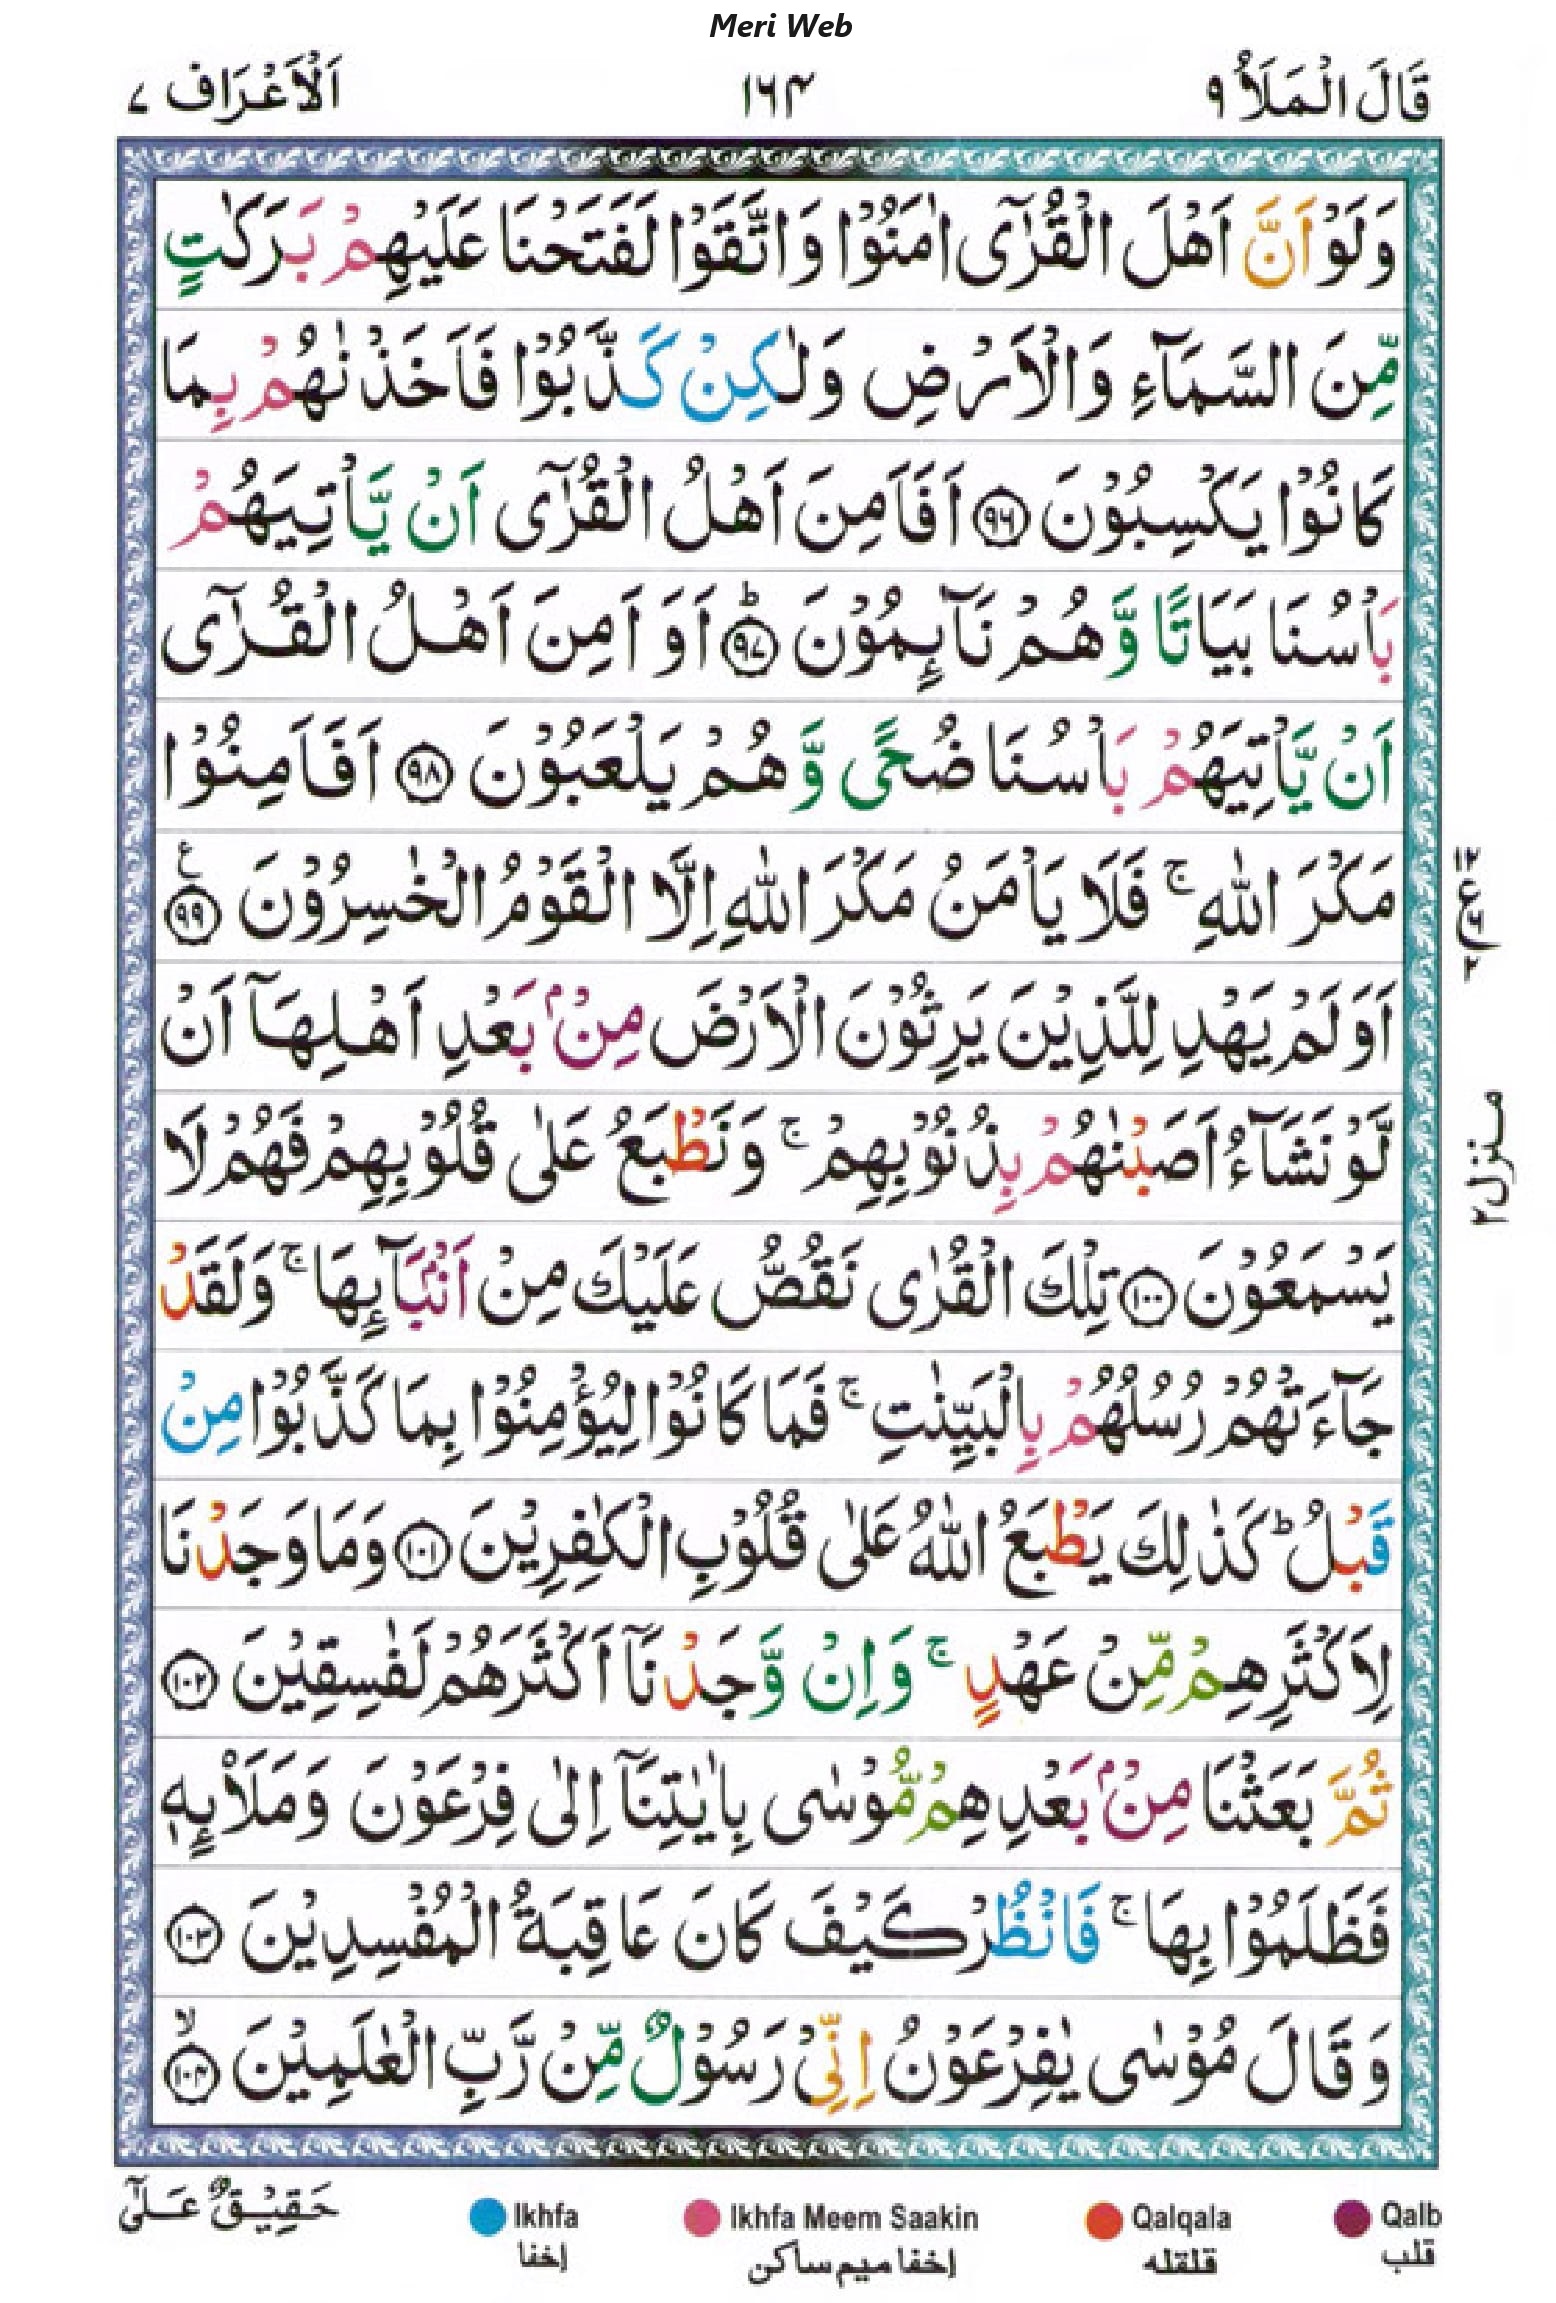 Meri Web
قَالَ الْمَلَاُ ٩
١٦٤
اَلْاَعْرَاف ٧
وَلَوْ اَنَّ اَهْلَ الْقُرٰٓى اٰمَنُوْا وَاتَّقَوْا لَفَتَحْنَا عَلَيْهِمْ بَرَكٰتٍ
مِّنَ السَّمَآءِ وَالْاَرْضِ وَلٰكِنْ كَذَّبُوْا فَاَخَذْنٰهُمْ بِمَا
كَانُوْا يَكْسِبُوْنَ ﴿۹۶﴾ اَفَاَمِنَ اَهْلُ الْقُرٰٓى اَنْ يَّاْتِيَهُمْ
بَاْسُنَا بَيَاتًا وَّهُمْ نَآئِمُوْنَ ﴿۹۷﴾ؕ اَوَ اَمِنَ اَهْلُ الْقُرٰٓى
اَنْ يَّاْتِيَهُمْ بَاْسُنَا ضُحًى وَّهُمْ يَلْعَبُوْنَ ﴿۹۸﴾ اَفَاَمِنُوْا
مَكْرَ اللّٰهِ ۚ فَلَا يَاْمَنُ مَكْرَ اللّٰهِ اِلَّا الْقَوْمُ الْخٰسِرُوْنَ ﴿۹۹﴾ ع
١٢
ع
٢
اَوَلَمْ يَهْدِ لِلَّذِيْنَ يَرِثُوْنَ الْاَرْضَ مِنْۢ بَعْدِ اَهْلِهَاۤ اَنْ
لَّوْ نَشَآءُ اَصَبْنٰهُمْ بِذُنُوْبِهِمْ ۚ وَنَطْبَعُ عَلٰى قُلُوْبِهِمْ فَهُمْ لَا
منزل ٢
يَسْمَعُوْنَ ﴿۱۰۰﴾ تِلْكَ الْقُرٰى نَقُصُّ عَلَيْكَ مِنْ اَنْۢبَآئِهَا ۚ وَلَقَدْ
جَآءَتْهُمْ رُسُلُهُمْ بِالْبَيِّنٰتِ ۚ فَمَا كَانُوْا لِيُؤْمِنُوْا بِمَا كَذَّبُوْا مِنْ
قَبْلُ ؕ كَذٰلِكَ يَطْبَعُ اللّٰهُ عَلٰى قُلُوْبِ الْكٰفِرِيْنَ ﴿۱۰۱﴾ وَمَا وَجَدْنَا
لِاَكْثَرِهِمْ مِّنْ عَهْدٍ ۚ وَاِنْ وَّجَدْنَاۤ اَكْثَرَهُمْ لَفٰسِقِيْنَ ﴿۱۰۲﴾
ثُمَّ بَعَثْنَا مِنْۢ بَعْدِهِمْ مُّوْسٰى بِاٰيٰتِنَاۤ اِلٰى فِرْعَوْنَ وَمَلَا۟ئِهٖ
فَظَلَمُوْا بِهَا ۚ فَانْظُرْ كَيْفَ كَانَ عَاقِبَةُ الْمُفْسِدِيْنَ ﴿۱۰۳﴾
وَقَالَ مُوْسٰى يٰفِرْعَوْنُ اِنِّيْ رَسُوْلٌ مِّنْ رَّبِّ الْعٰلَمِيْنَ ﴿۱۰۴﴾ۙ
حَقِيْقٌ عَلٰٓى
Ikhfa
Ikhfa Meem Saakin
Qalqala
Qalb
إخفا
إخفا ميم ساكن
قلقله
قلب